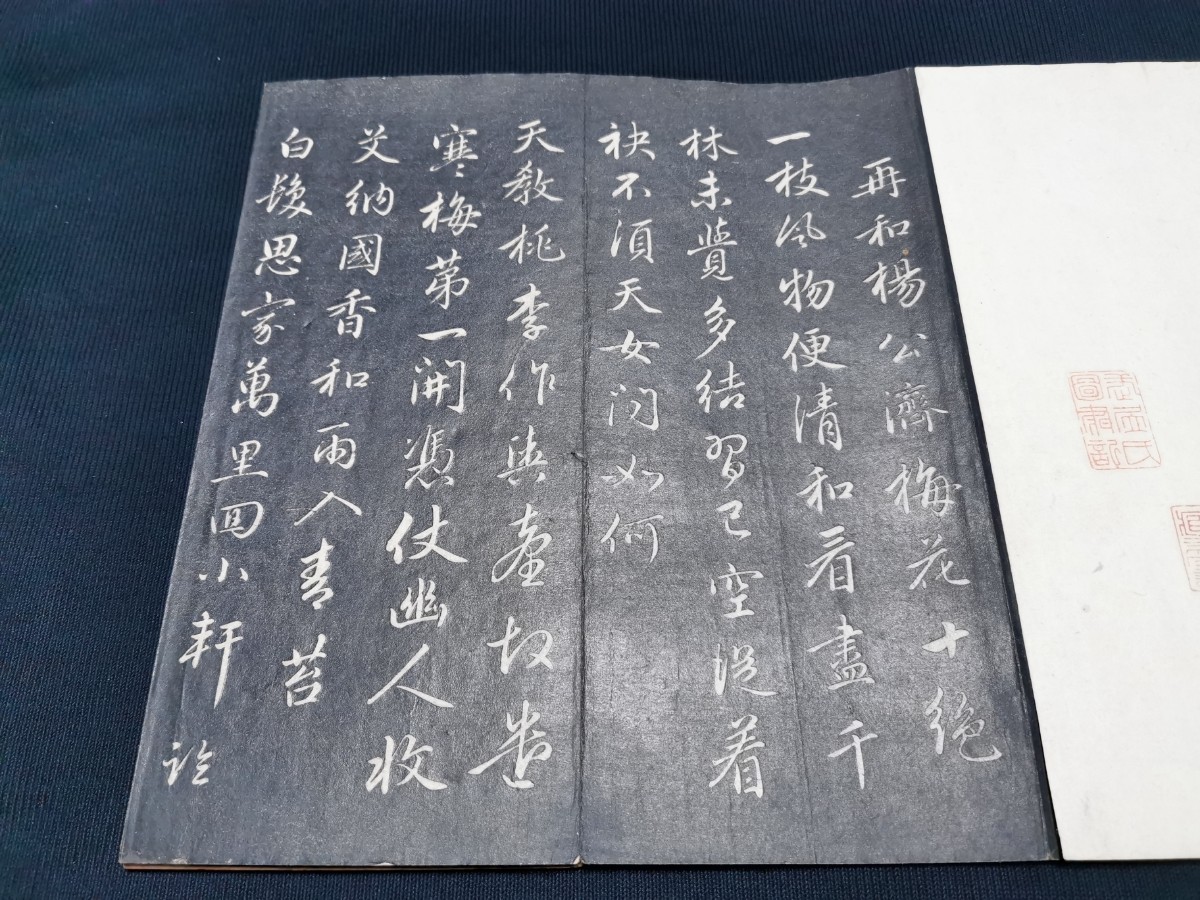 再和楊公濟梅花十絕
一枝風物便清和看盡千
林未覺多結習已空從着
袂不須天女問如何
天教桃李作輿臺故遣
寒梅第一開憑仗幽人收
艾納國香和雨入青苔
白髮思家萬里囬小軒臨